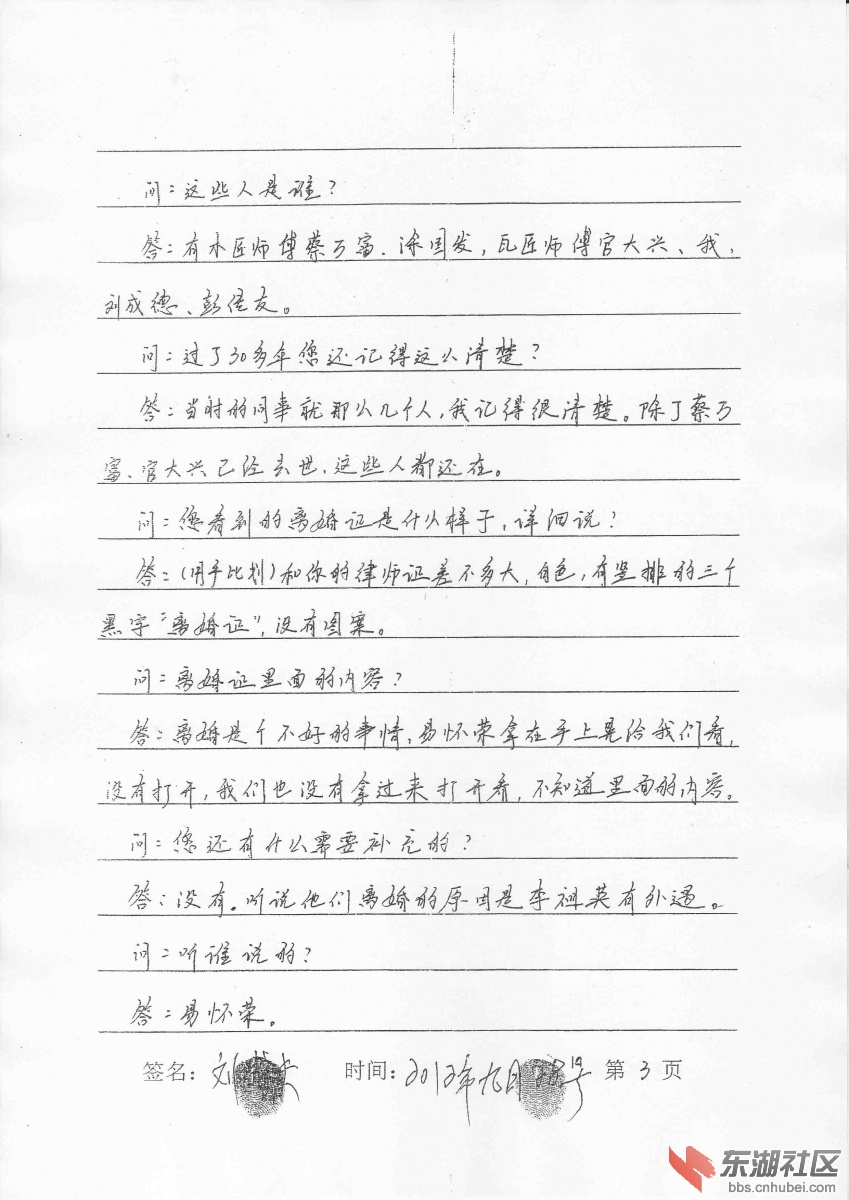 问：这些人是谁？
答：有木匠师傅蔡万富、涂国发，瓦匠师傅官大兴、我、
刘成德、彭传友。
问：过了30多年您还记得这么清楚？
答：当时的同事就那么几个人，我记得很清楚。除了蔡万
富、官大兴已经去世，这些人都还在。
问：您看到的离婚证是什么样子，详细说！
答：（用手比划）和你的律师证差不多大，白色，有竖排的三个
黑字“离婚证”，没有图案。
问：离婚证里面的内容？
答：离婚是个不好的事情，易怀荣拿在手上晃给我们看，
没有打开，我们也没有拿过来打开看，不知道里面的内容。
问：您还有什么需要补充的？
答：没有。听说他们离婚的原因是李祖英有外遇。
问：听谁说的？
答：易怀荣。
签名：刘 时间：2012年九月 号 第3页
东湖社区
bbs.cnhubei.com